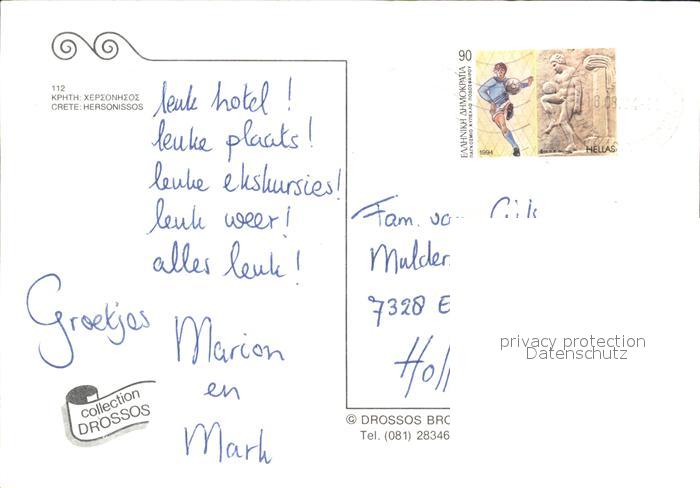 112
ΚΡΗΤΗ: ΧΕΡΣΟΝΗΣΟΣ
CRETE: HERSONISSOS
leuk hotel!
leuke plaats!
leuke ekskursies!
leuk weer!
alles leuk!
Groetjes
Marion
en
Mark
collection
DROSSOS
90
ΕΛΛΗΝΙΚΗ ΔΗΜΟΚΡΑΤΙΑ
ΠΑΓΚΟΣΜΙΟ ΚΥΠΕΛΛΟ ΠΟΔΟΣΦΑΙΡΟΥ
1994
HELLAS
Fam.
Mulder
7328 E
Holl
privacy protection
Datenschutz
© DROSSOS BRO
Tel. (081) 28346